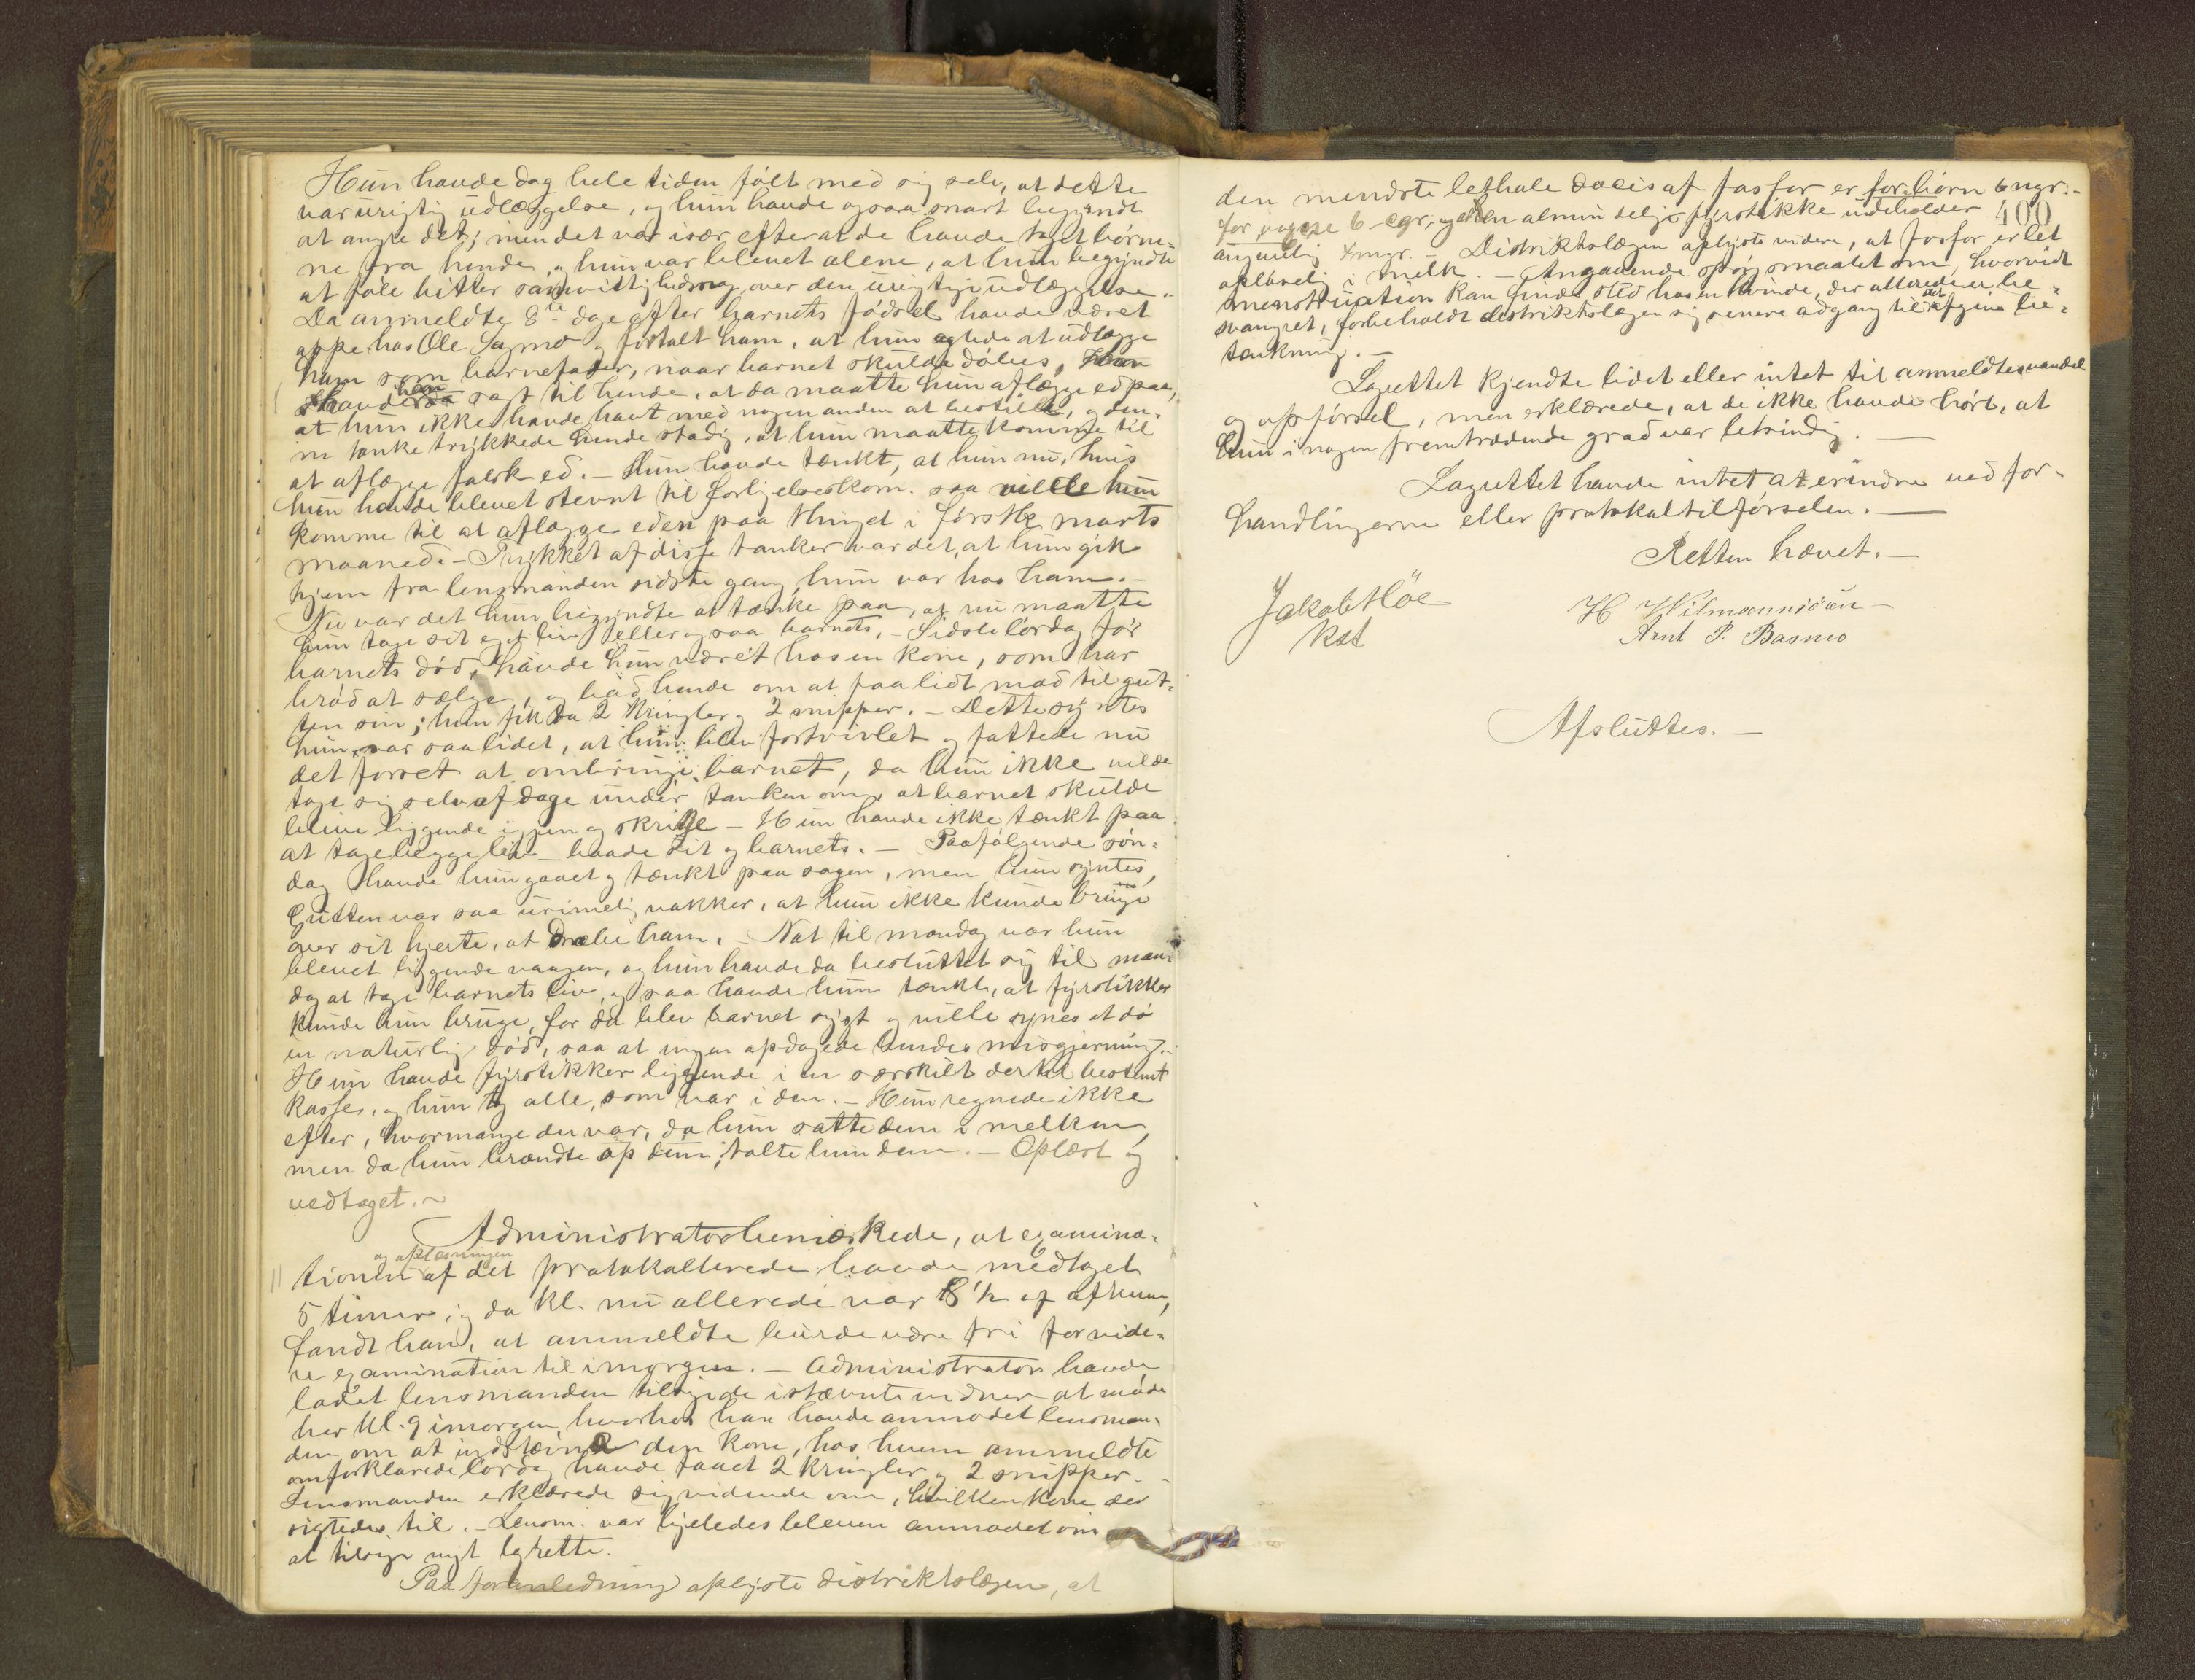 Hun havde dog hele tiden følt med sig selv, at dette
var urigtig udlæggelse, og hun havde ogsaa snart begyndt
at angre det; men det var især efterat de havde taget børne-
ne fra hende, og hun var blevet alene, at hun begyndte
at føle bitter samvittighedsnag over den urigtige udlæggelse.
Da anmeldte 8te dage efter barnets fødsel havde været
oppe hos Ole Sagmo og fortalt ham, at hun agtede at udlægge
ham som barnefader, naar barnet skulde døbes,
havde han sagt til hende, at da maatte hun aflægge ed paa,
at hun ikke havde havt med nogen anden at bestille, og den-
ne tanke trykkede hende stadig, at hun maatte komme til
at aflægge falsk ed. – Hun havde tænkt, at hun nu, hvis
hun havde blevet stevnt til forligelseskom. saa vilde hun
komme til at aflægge eden paa thinget i første marts
maaned. – Trykket af disse tanker var det, at hun gik
hjem fra lensmanden sidste gang hun var hos ham. –
Nu var det hun begyndte at tænke paa, at nu maatte
hun tage sit eget liv eller ogsaa barnets. – Sidste lørdag før
barnets død, havde hun været hos en kone, som har
brød at sælge, og bad hende om at faa lidt mad til gut-
ten sin; hun fik da 2 kringler og 2 snipper. – Dette syntes
hun var saa lidet, at hun blev fortvivlet og fattede nu
det forset at ombringe barnet, da hun ikke vilde
tage sig selv af dage under tanken om, at barnet skulde
blive liggende igjen og skrige – Hun havde ikke tænkt paa
at tage begge liv – baade sit og barnets. – Paafølgende søn-
dag havde hun gaaet og tænkt paa sagen, men hun syntes,
gutten var saa urimelig vakker, at hun ikke kunde bringe
over sit hjerte, at dræbe ham. – Nat til mandag var hun
blevet liggende vaagen, og hun havde da besluttet sig til man-
dag at tage barnets liv, og saa havde hun tænkt, at fyrstikker
kunde hun bruge, for da blev barnet sygt og ville synes at dø
en naturlig død, saa at ingen opdagede hendes misgjerning. –
Hun havde fyrstikker liggende i en særskilt dertil bestemt
kasse, og hun tog alle, som var i den. – Hun regnede ikke
efter, hvormange der var, da hun satte dem i melken,
men da hun brændte op dem, talte hun dem. – Oplæst og
vedtaget. ~
Administrator bemærkede, at examina-
og oplæsningen
tionen af det protokollerede havde medtaget
5 timer, og da kl. nu allerede var 8 1/2 eft aftenen,
fandt han, at anmeldte burde være fri for vide-
re examination til imorgen. – Administrator havde
ladet lensmanden tilsige istævnte vidner at møde
her kl. 9 imorgen, hvorhos han havde anmodet lensman-
den om at indstævne den kone, hos hvem anmeldte
omforklarede lørdag havde faaet 2 kringler og 2 snipper. –
Lensmanden erklærede sig vidende om, hvilken kone der
sigtedes til. – Lensm. var ligeledes bleven anmodet om
at tilsige nyt lagrette.
Paa foranledning oplyste distriktslægen, at
den mindste lethale dosis af fosfor er for børn 6 mgr. –
for voxne 6 cgr, og at en almindelig fyrstikke indeholder
400
angivelig 4 mgr. – Distriktslægen oplyste videre, at fosfor er let
opløselig i melk. – Angaaende spørgsmaalet om, hvorvidt
menstruation kan finde sted hos en kvinde, der allerede er be-
svangret, forbeholdt distriktslægen sig senere adgang til at afgive be-
tænkning. –
Lagrettet kjendte lidet eller intet til anmeldtes vandel
og opførsel, men erklærede, at de ikke havde hørt, at
hun i nogen fremtrædende grad var letsindig. –
Lagrettet havde intet at erindre ved for-
handlingerne eller protokoltilførselen. –
Retten hævet. –
Jakob Høe
Kst
H Wilmannsøen
Arnt P. Basmo
Afsluttes. –